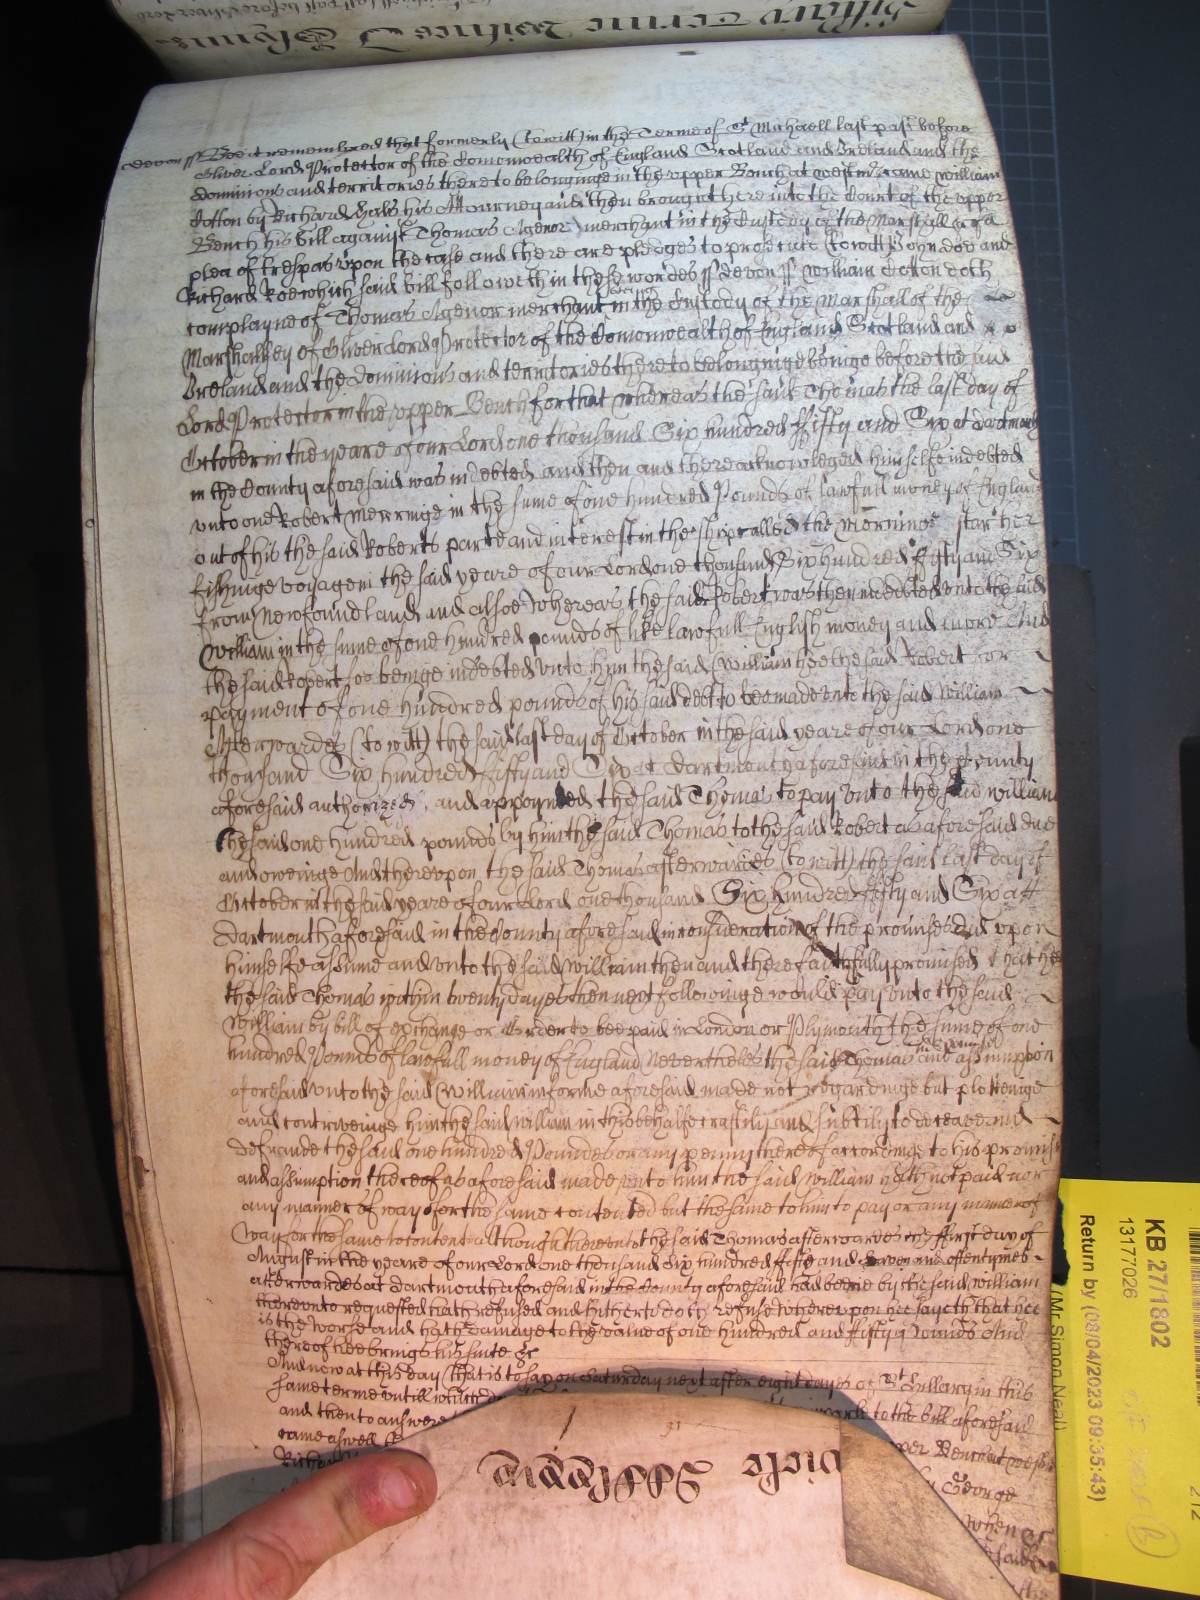 Hillary Terme Witnes J Glynne
devon ss Bee it remembred that formerly (to witt) in the Terme of St Michaell last past before
Oliver Lord Protector of the Comonwealth of England Scotland and Ireland and the
dominions and territories thereto belonginge in the upper Bench at westmr came William
Cotton by Richard Hals his Attourney and then brought here into the Court of the upper
Bench his bill against Thomas Agenor merchant in the Custody of the Marshall &c of a
plea of trespas upon the case and there are pledges to prosecute (to witt) John doe and
Richard Roe which said bill followeth in these wordes ss devon ss William Cotton doth
complayne of Thomas Agenor merchant in the Custody of the Marshall of the
Marshalsey of Oliver Lord Protector of the Comonwealth of England Scotland and
Ireland and the dominions and territories thereto belonginge beinge before the said
Lord Protector in the upper Bench for that whereas the said Thomas the last day of
October in the yeare of our Lord one thousand Six hundred ffifty and Six at dartmouth
in the County aforesaid was indebted and then and there acknowleged himselfe indebted
unto one Robert Merringe in the sume of one hundred Pounds of lawfull money of England
out of his the said Roberts parte and interest in the ship called the Morninge star her
fishinge voyage in the said yeare of our Lord one thousand Six hundred ffifty and Six
from Newfoundland and alsoe whereas the said Robert was then indebted unto the said
William in the sume of one hundred pounds of like lawfull English money and more And
the said Robert soe beinge indebted unto him the said William hee the said Robert for
payment of one hundred pounds of his said debt to bee made unto the said William
Afterwardes (to witt) the said last day of October in the said yeare of our Lord one
thousand Six hundred ffifty and Six at dartmouth aforesaid in the County
aforesaid authorized and appoynted the said Thomas to pay unto the said William
the said one hundred pounds by him the said Thomas to the said Robert as aforesaid due
and oweinge And thereupon the said Thomas afterwardes (to witt) the said last day of
October in the said yeare of our Lord one thousand Six hundred ffifty and Six att
dartmouth aforesaid in the County aforesaid in consideration of the premises did upon
himselfe assume and unto the said William then and there faithfully promised that hee
the said Thomas within twenty dayes then next followinge would pay unto the said
William by bill of exchange or Order to bee paid in London or Plymouth the sume of one
hundred Pounds of lawfull money of England Nevertheles the said Thomas his promise and assumption
aforesaid unto the said William in forme aforesaid made not regardinge but plottinge
and contriveinge him the said William in this behalfe craftily and subtily to deceave and
defraude the said one hundred Pounds or any penny thereof accordinge to his promise
and assumption thereof as aforesaid made unto him the said William hath not paid nor
any manner of way for the same contented but the same to him to pay or any manner of
way for the same to content although thereunto the said Thomas afterwardes the ffirst day of
August in the yeare of our Lord one thousand six hundred fifty and seaven and oftentymes
afterwardes at dartmouth aforesaid in the County aforesaid had beene by the said William
thereunto requested hath refused and hitherto doth refuse Whereupon hee sayeth that hee
is the worse and hath damage to the value of one hundred and ffifty Pounds And
thereof hee brings his suite &c
And now at this day (that is to say) on Saturday next after eight dayes of St Hillary in this
same terme untill which to the bill aforesaid
and then to answere
came aswell per Bench at westmr
Richard
by George
when &c
said
the
KB 27/1802
13177026
(Mr Simon Neal)
Return by (08/04/2023 09:35:43)
212